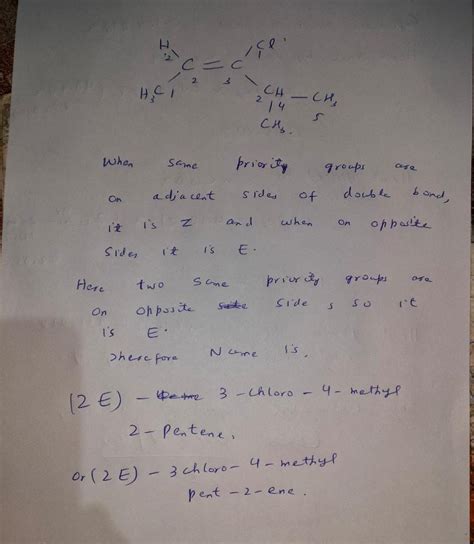 H Cl
2 1
C = C
2 3
H₃C 1 2 CH — CH₃
4 5
CH₃.
When same priority groups are
on adjacent sides of double bond,
it is Z and when on opposite
sides it is E.
Here two same priority groups are
on opposite side s so it
is E.
Therefore Name is,
(2E) - 3-chloro-4-methyl
2-pentene,
Or (2E) - 3chloro-4-methyl
pent-2-ene.